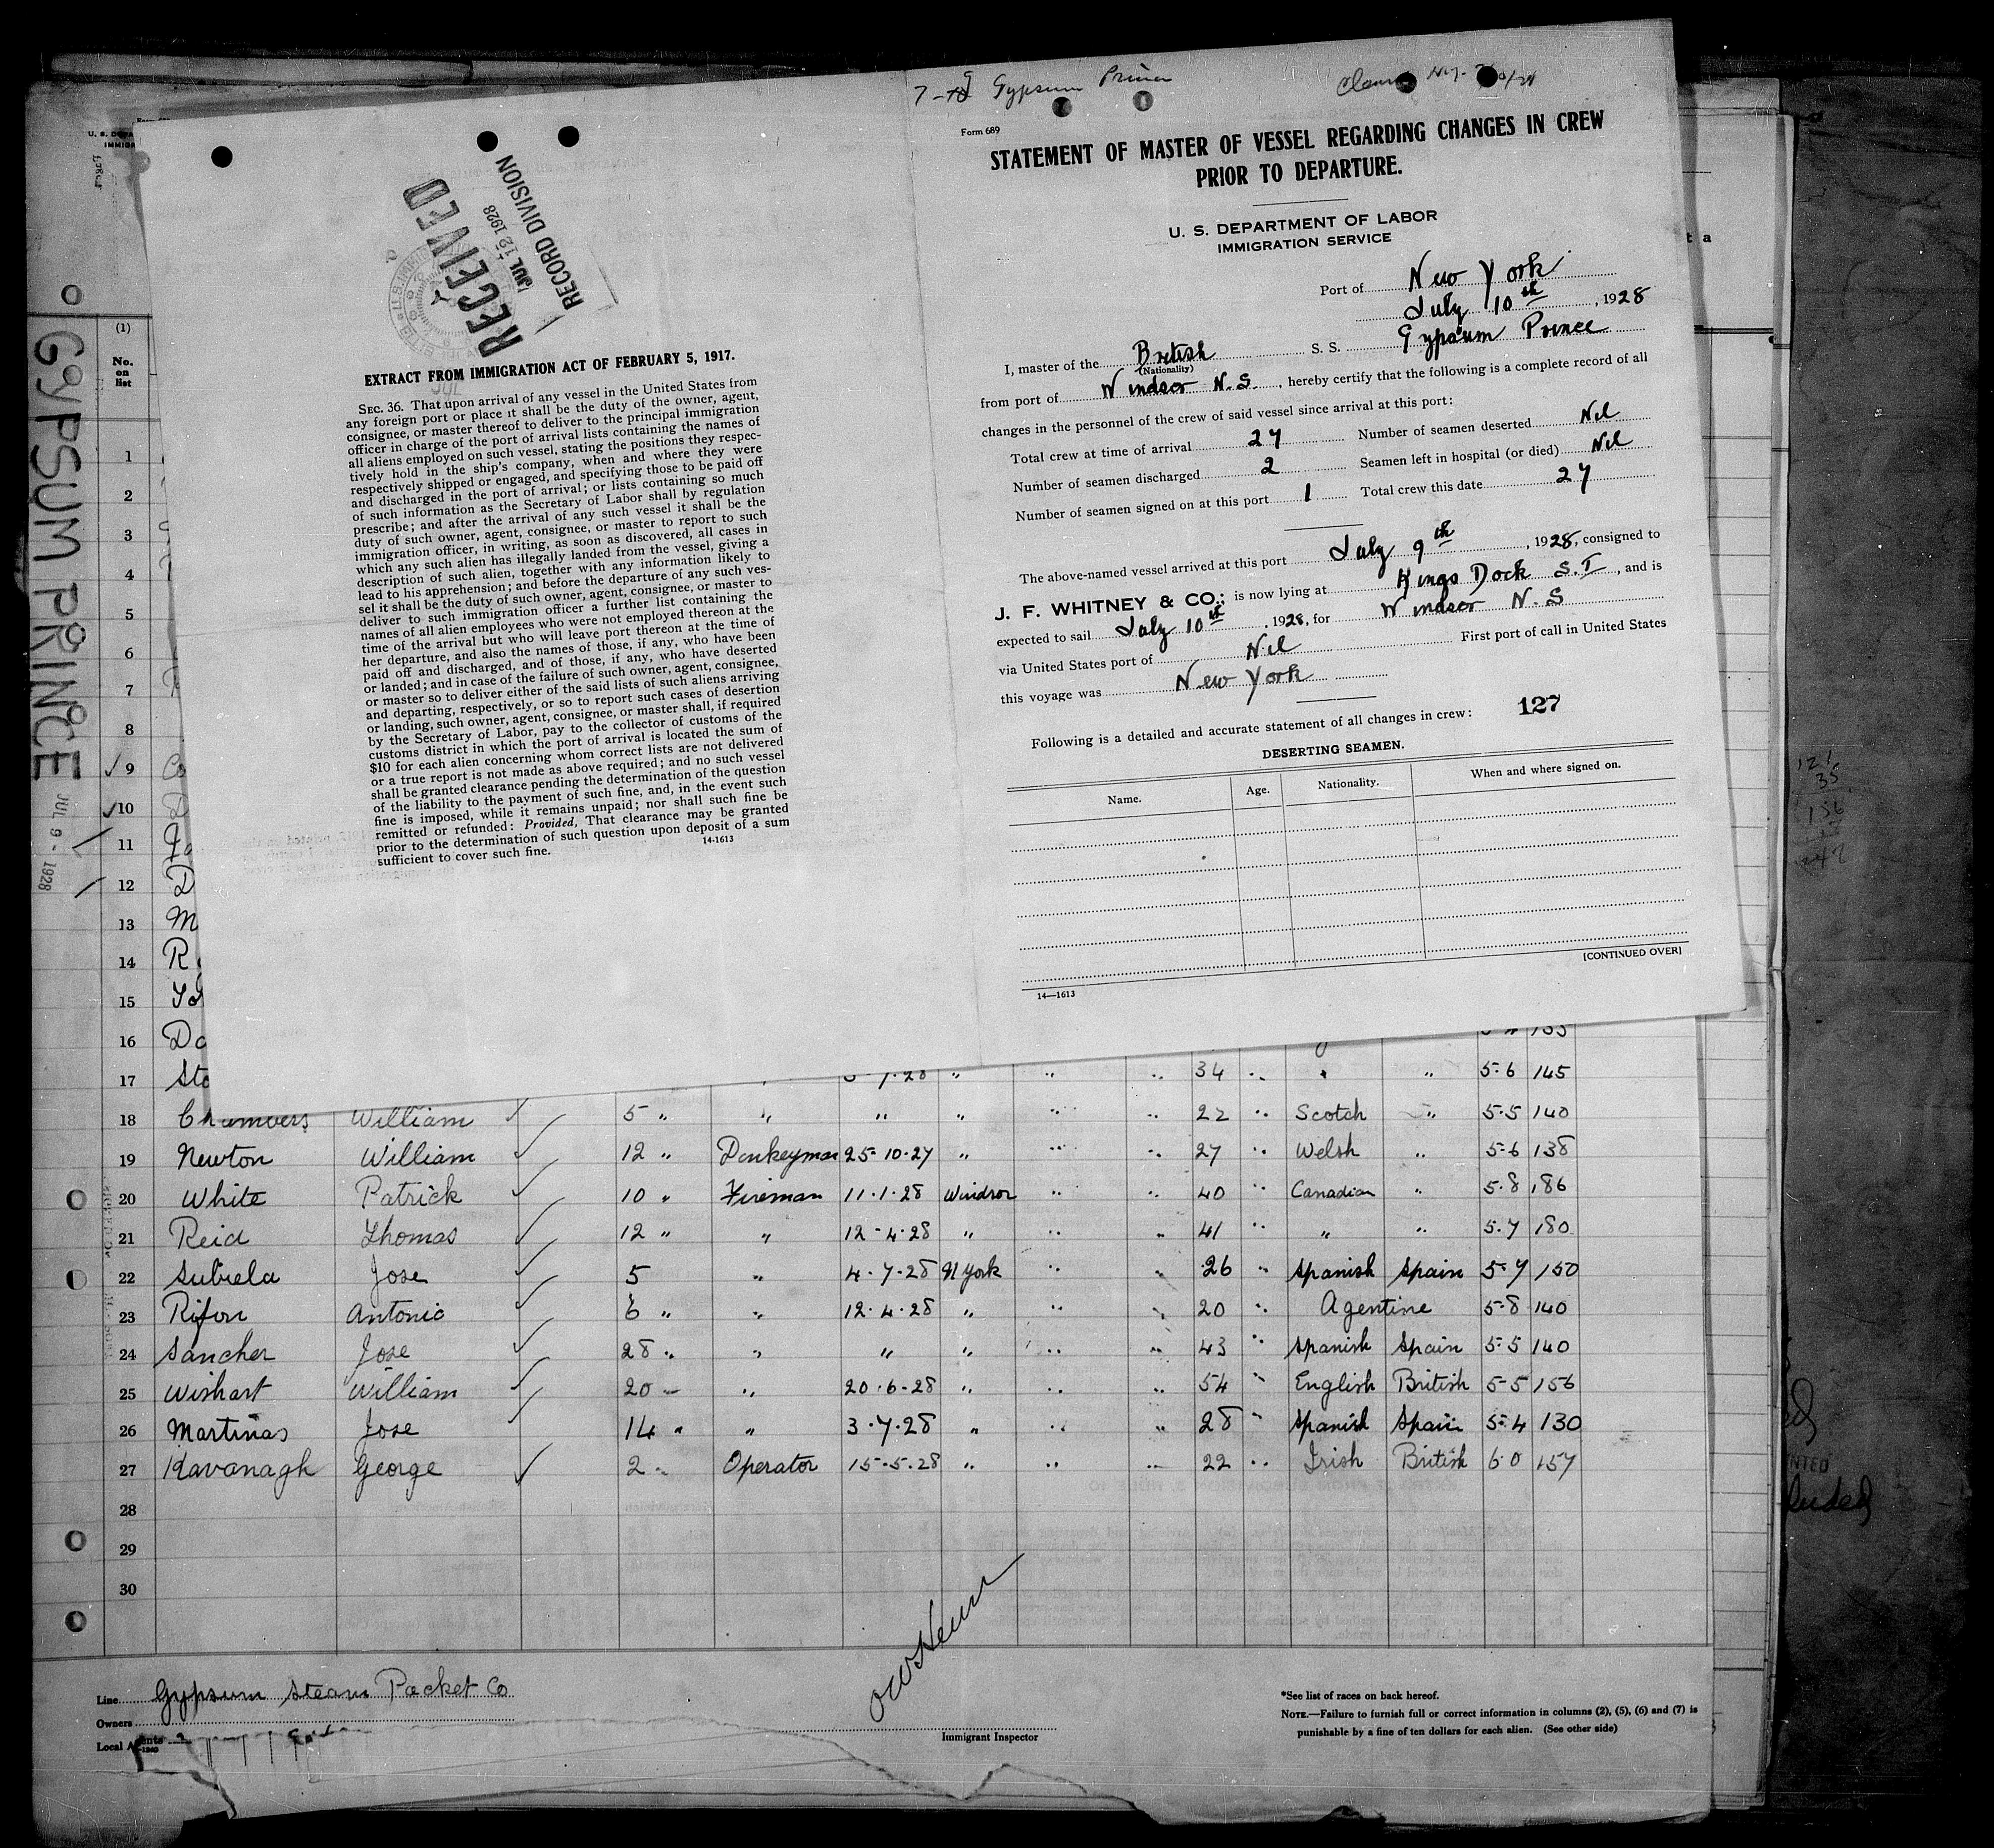 Gypsum Prince
Form 689
STATEMENT OF MASTER OF VESSEL REGARDING CHANGES IN CREW
PRIOR TO DEPARTURE.
U. S. DEPARTMENT OF LABOR
IMMIGRATION SERVICE
Port of New York
July 10th, 1928
I, master of the British S. S. Gypsum Prince
(Nationality)
from port of Windsor N.S., hereby certify that the following is a complete record of all
changes in the personnel of the crew of said vessel since arrival at this port:
Total crew at time of arrival 27 Number of seamen deserted Nil
Number of seamen discharged 2 Seamen left in hospital (or died) Nil
Number of seamen signed on at this port 1 Total crew this date 27
The above-named vessel arrived at this port July 9th, 1928, consigned to
J. F. WHITNEY & CO.; is now lying at Kings Dock S.I, and is
expected to sail July 10th, 1928, for Windsor N.S
via United States port of Nil First port of call in United States
this voyage was New York
127
Following is a detailed and accurate statement of all changes in crew:
DESERTING SEAMEN.
Name. Age. Nationality. When and where signed on.
[CONTINUED OVER]
14—1613
RECEIVED
JUL 12 1928
RECORD DIVISION
EXTRACT FROM IMMIGRATION ACT OF FEBRUARY 5, 1917.
SEC. 36. That upon arrival of any vessel in the United States from
any foreign port or place it shall be the duty of the owner, agent,
consignee, or master thereof to deliver to the principal immigration
officer in charge of the port of arrival lists containing the names of
all aliens employed on such vessel, stating the positions they respec-
tively hold in the ship's company, when and where they were
respectively shipped or engaged, and specifying those to be paid off
and discharged in the port of arrival; or lists containing so much
of such information as the Secretary of Labor shall by regulation
prescribe; and after the arrival of any such vessel it shall be the
duty of such owner, agent, consignee, or master to report to such
immigration officer, in writing, as soon as discovered, all cases in
which any such alien has illegally landed from the vessel, giving a
description of such alien, together with any information likely to
lead to his apprehension; and before the departure of any such ves-
sel it shall be the duty of such owner, agent, consignee, or master to
deliver to such immigration officer a further list containing the
names of all alien employees who were not employed thereon at the
time of the arrival but who will leave port thereon at the time of
her departure, and also the names of those, if any, who have been
paid off and discharged, and of those, if any, who have deserted
or landed; and in case of the failure of such owner, agent, consignee,
or master so to deliver either of the said lists of such aliens arriving
and departing, respectively, or so to report such cases of desertion
or landing, such owner, agent, consignee, or master shall, if required
by the Secretary of Labor, pay to the collector of customs of the
customs district in which the port of arrival is located the sum of
$10 for each alien concerning whom correct lists are not delivered
or a true report is not made as above required; and no such vessel
shall be granted clearance pending the determination of the question
of the liability to the payment of such fine, and, in the event such
fine is imposed, while it remains unpaid; nor shall such fine be
remitted or refunded: Provided, That clearance may be granted
prior to the determination of such question upon deposit of a sum
sufficient to cover such fine. 14-1613
GYPSUM PRINCE
JUL 9 - 1928
(1)
No.
on
list
1
2
3
4
5
6
7
8
9
10
11
12
13
14
15
16
17 34 " " 5-6 145
18 Chambers William 5 " " " " " " 22 " Scotch " 5.5 140
19 Newton William 12 " Donkeyman 25-10-27 " " " 27 " Welsh " 5-6 138
20 White Patrick 10 " Fireman 11.1.28 Windsor " " 40 " Canadian " 5.8 186
21 Reid Thomas 12 " " 12-4-28 " " " 41 " " " 5.7 180
22 Subiela Jose 5 " 4.7.28 N York " " 26 " Spanish Spain 5-7 150
23 Rifon Antonio 6 " " 12.4.28 " " " 20 " Agentine 5-8 140
24 Sancher Jose 28 " " " " " " 43 " Spanish Spain 5-5 140
25 Wishart William 20 " " 20.6.28 " " " 54 " English British 5-5 156
26 Martinas Jose 14 " " 3.7.28 " " " 28 " Spanish Spain 5.4 130
27 Kavanagh George 2 " Operator 15.5.28 " " " 22 " Irish British 6.0 157
28
29
30
Line Gypsum Steam Packet Co
Owners
Local Agents
Immigrant Inspector
*See list of races on back hereof.
NOTE.—Failure to furnish full or correct information in columns (2), (5), (6) and (7) is
punishable by a fine of ten dollars for each alien. (See other side)